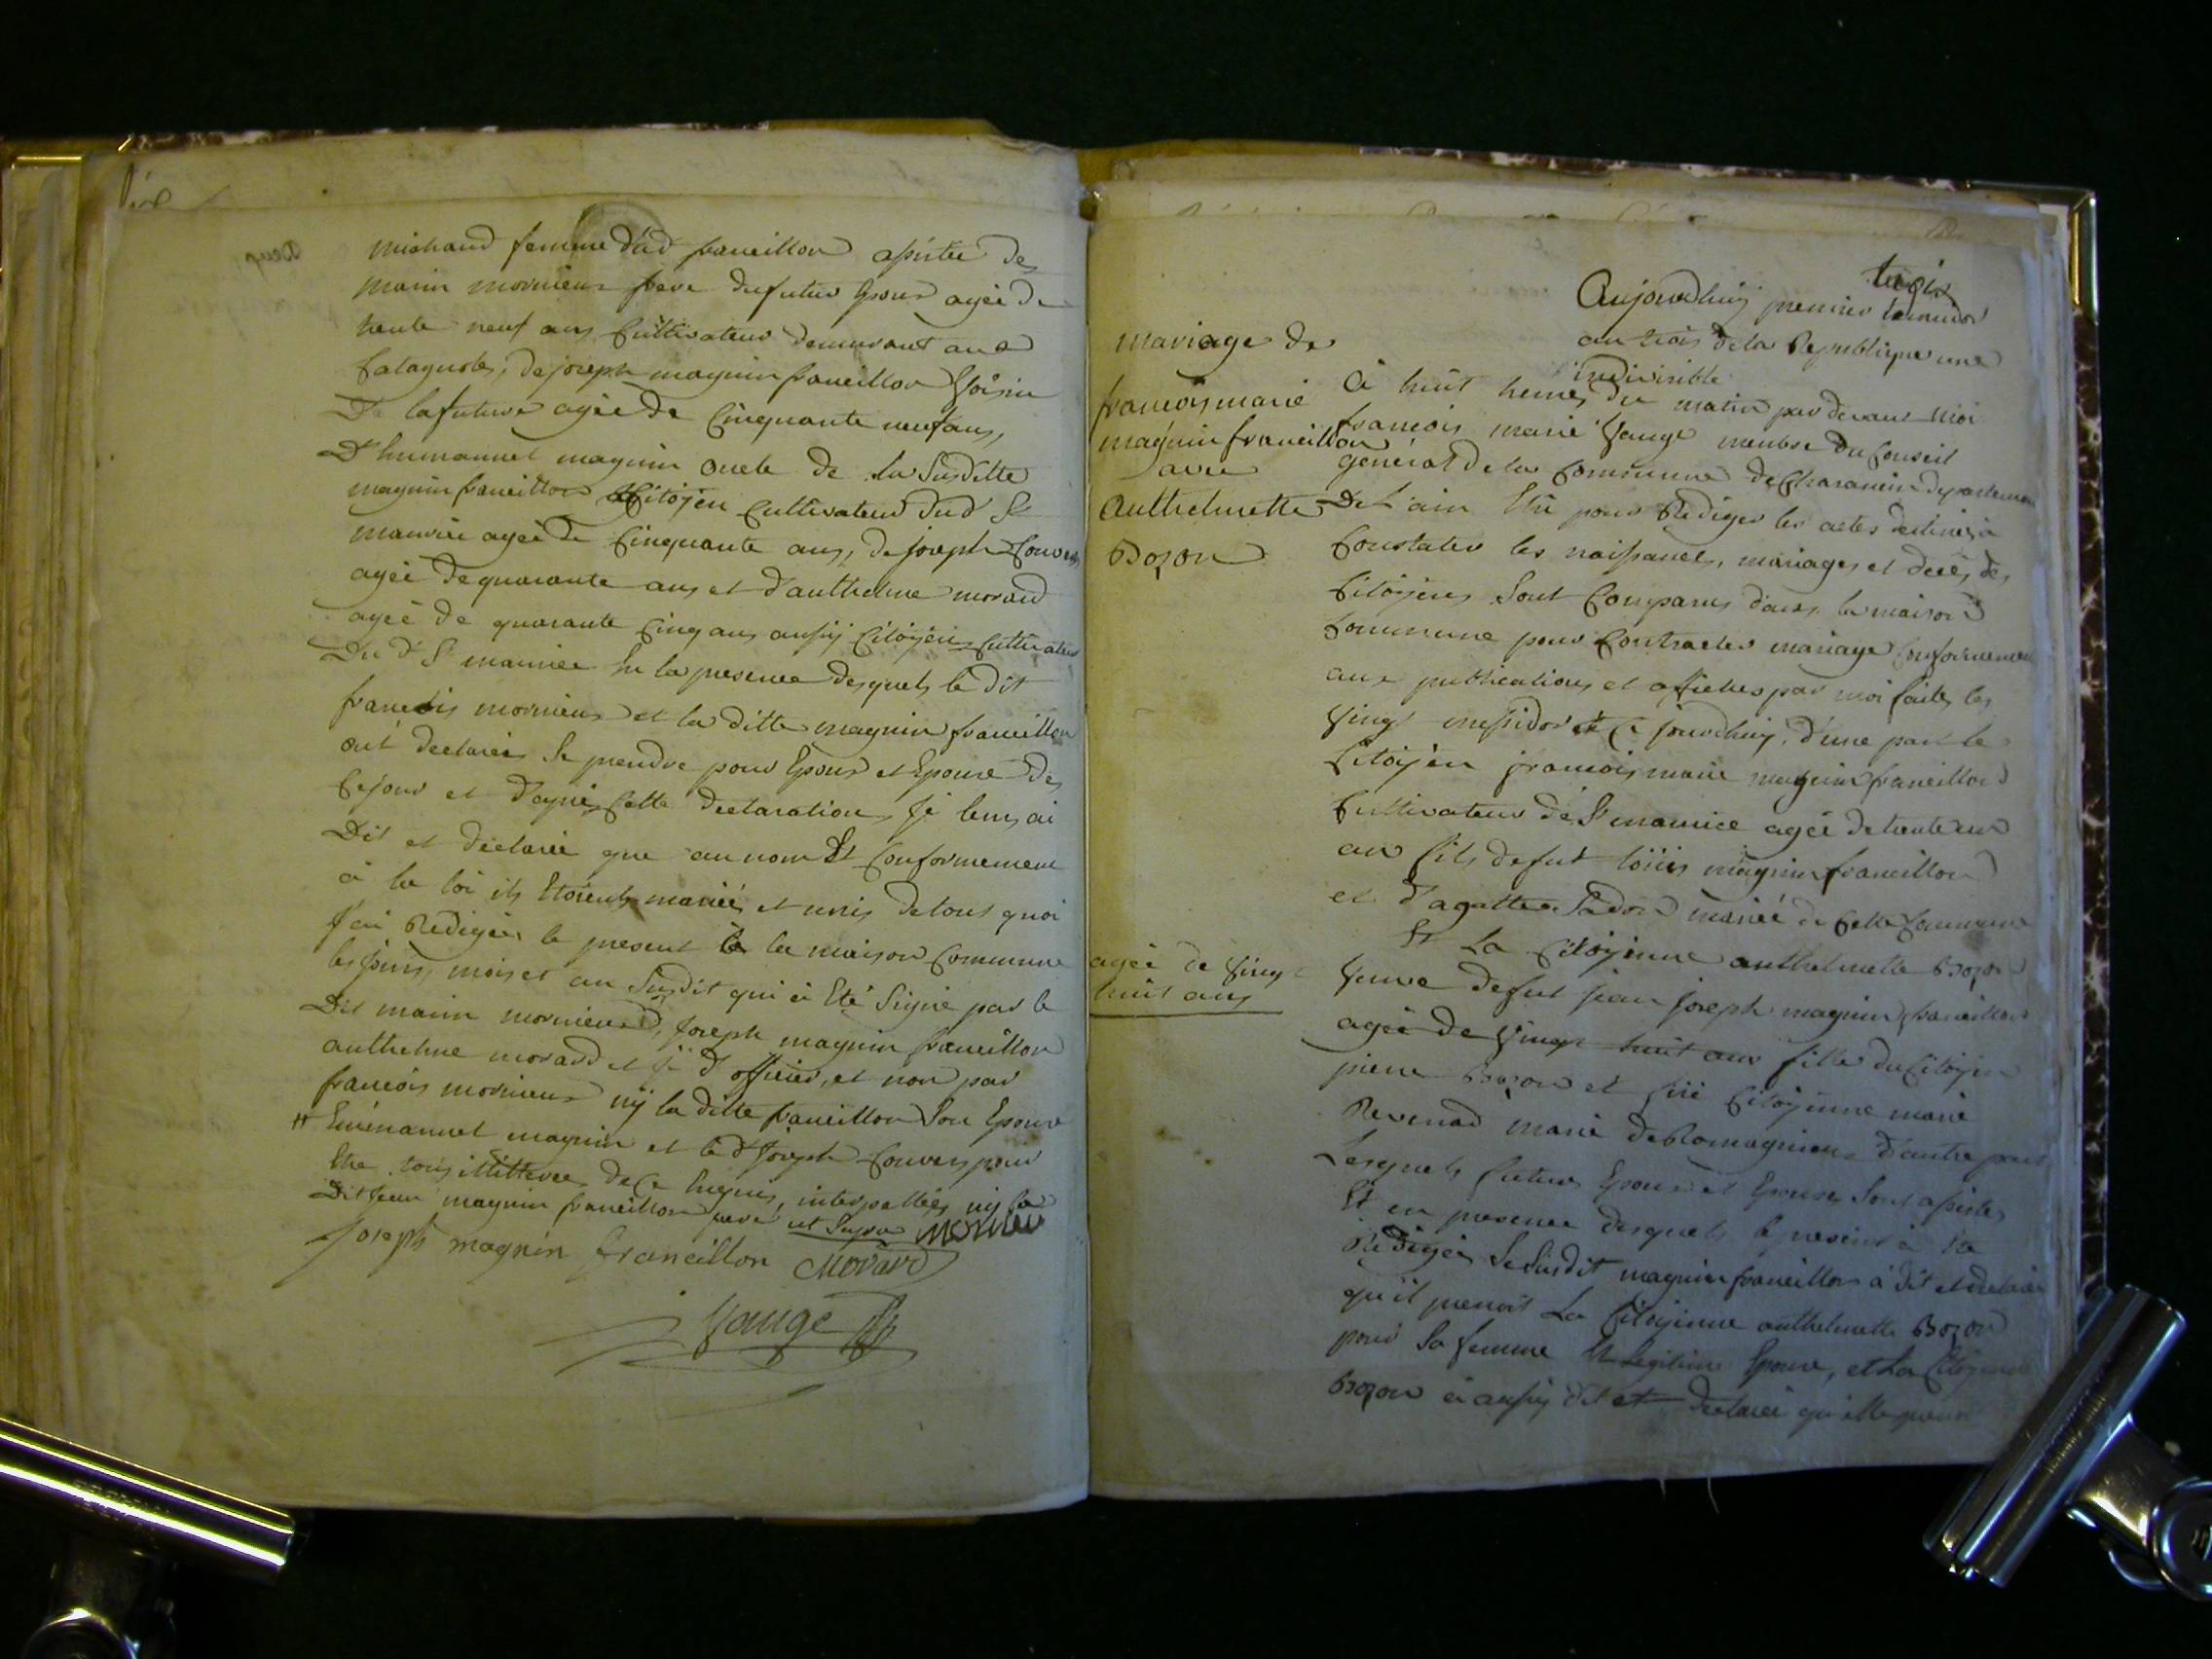 michaud femme dud franeillon assistée de
marin mornieux frere du futur Epoux agée de
trente neuf ans Cultivateur demeurant aux
Catagnoles, de joseph magnin franeillon Voisin
De la future agée de Cinquante neuf ans,
D'humanuel magnin oncle de la Susditte
magnin franeillon Citoÿen Cultivateur dud St
maurice agée de Cinquante ans, de joseph Convers
agée de quarante ans et d'anthelme morard
agée de quarante Cinq ans aussÿ Citoÿens Cultivateurs
Du d St maurice En la presence desquels le dit
francois mornieux et la ditte magnin franeillon
ont declarée Se prendre pour Epoux et Epouse de
Ce jour et d'après Cette declaration Je leurs ai
Dit et declarée que au nom Et Conformement
à la loi ils Etoient mariés et unis de tous quoi
J'ai Redigée le present à la maison Commune
les jours, mois et an Susdit qui à Eté Signé par le
Dit marin mornieux, Joseph magnin franeillon
anthelme morard et je d officier, et non par
francois mornieux nÿ la ditte franeillon Son Epouse
Emémanuel magnin et le d Joseph Convers pour
Etre tous illitterés de Ce Enquis, interpellées nÿ le
Dit jean magnin franeillon pere ut Supra mornieu
Joseph magnin franeillon Morard
Vauge
trois
Aujourdhuÿ premier termidor
an trois de la Republique une
Indivisible
mariage de
francois marie
magnin franeillon
avec
Anthelmette
Bozon
à huit heures du matin par devant Moi
francois marie Vauge membre du Conseil
général de la Commune de Charancin departement
De L'ain Elû pour Rediger les actes destinés à
Constater les naissances, mariages et decès des
Citoÿens Sont Comparus dans la maison
Commune pour Contracter mariage Conformement
aux publications et affiches par moi faites les
Vingt messidor et Ce jourdhuy, d'une part le
Citoÿen francois marie magnin franeillon
Cultivateur de St maurice agée de trente un
an fils de fut loüis magnin franeillon
et d'agatte Ladon mariée de Cette Commune
Et La Citoÿenne anthelmette Bozon
agée de Vingt
huit ans
Veuve de fut jean joseph magnin franeillon
agée de Vingt huit ans fille du Citoÿen
pierre Bozon et feüe Citoÿenne marie
Revenad marié de Romagnieux d'autre part
Lesquels futurs Epoux et Epouse Sont assistés
Et en presence desquels le present à été
Redigée Le Susdit magnin franeillon à dit et declarée
qu'il prenoit La Citoÿenne anthelmette Bozon
pour Sa femme Et Legitime Epouse, et La Citoÿenne
Bozon à aussÿ dit et declarée qu'elle prenoit